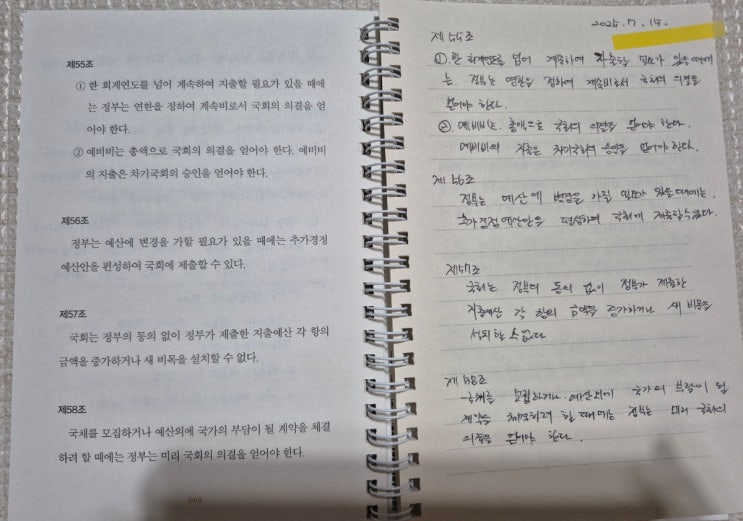 제55조
① 한 회계연도를 넘어 계속하여 지출할 필요가 있을 때에
는 정부는 연한을 정하여 계속비로서 국회의 의결을 얻
어야 한다.
② 예비비는 총액으로 국회의 의결을 얻어야 한다. 예비비
의 지출은 차기국회의 승인을 얻어야 한다.
제56조
정부는 예산에 변경을 가할 필요가 있을 때에는 추가경정
예산안을 편성하여 국회에 제출할 수 있다.
제57조
국회는 정부의 동의 없이 정부가 제출한 지출예산 각 항의
금액을 증가하거나 새 비목을 설치할 수 없다.
제58조
국채를 모집하거나 예산외에 국가의 부담이 될 계약을 체결
하려 할 때에는 정부는 미리 국회의 의결을 얻어야 한다.
060
제55조
① 한 회계연도를 넘어 계속하여 지출할 필요가 있을 때에
는 정부는 연한을 정하여 계속비로서 국회의 의결을
얻어야 한다.
② 예비비는 총액으로 국회의 의결을 얻어야 한다.
예비비의 지출은 차기국회의 승인을 얻어야 한다.
제56조
정부는 예산에 변경을 가할 필요가 있을 때에는
추가경정예산안을 편성하여 국회에 제출할 수 있다.
제57조
국회는 정부의 동의 없이 정부가 제출한
지출예산 각 항의 금액을 증가하거나 새 비목을
설치할 수 없다
제58조
국채를 모집하거나 예산외에 국가의 부담이 될
계약을 체결하려 할 때에는 정부는 미리 국회의
의결을 얻어야 한다.